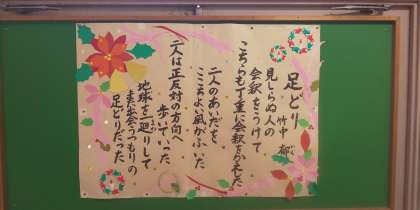 足どり
竹中 郁
いく
見しらぬ人の
会釈をうけて
こちらも丁重に会釈をかえした
二人のあいだを
ここちよい風がふいた
二人は正反対の方向へ
歩いていった
地球を一廻りして
まわ
また出会うつもりの
足どりだった